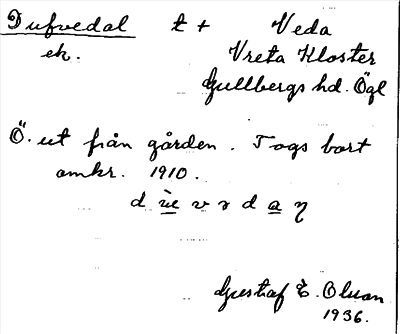 Dufvedal t + Veda
ek. Vreta Kloster
Gullbergs hd. Ögl
Ö. ut från gården. Togs bort
omkr. 1910.
Gustaf E. Olsson
1936.